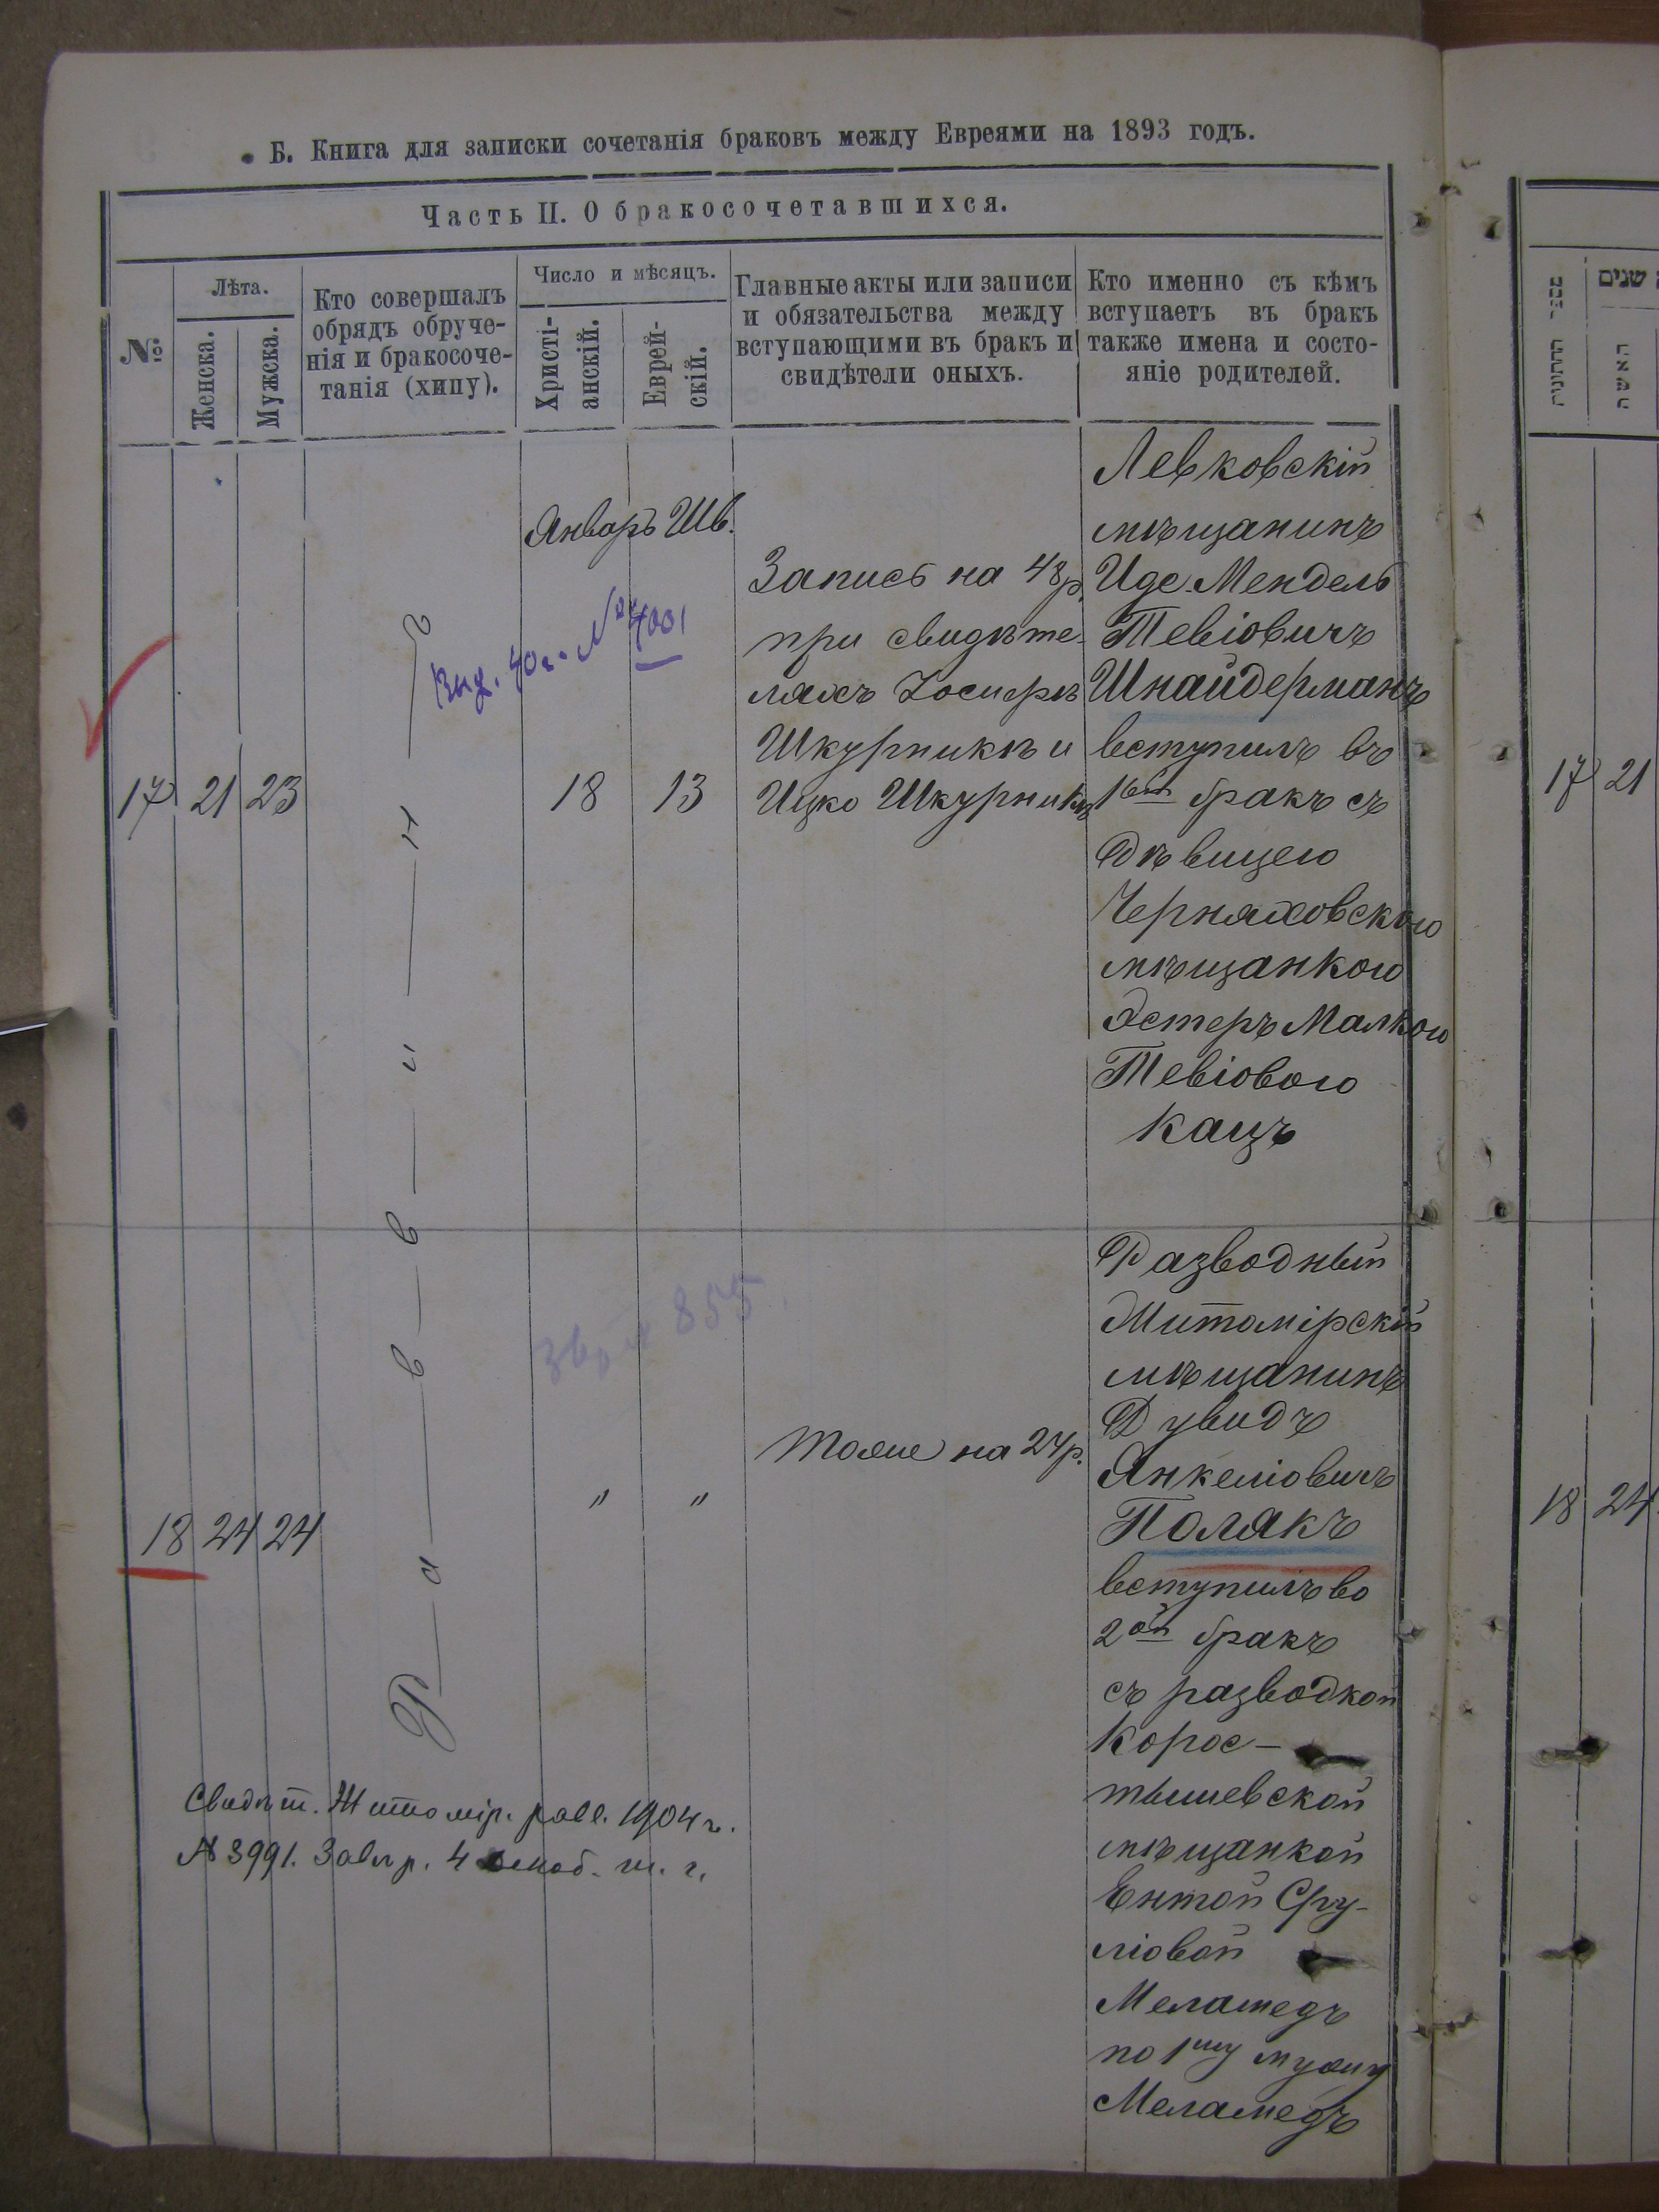 Б. Книга для записки сочетанія браковъ между Евреями на 1893 годъ.
Часть II. О бракосочетавшихся.
№
Лѣта.
Женска.
Мужска.
Кто совершалъ
обрядъ обруче-
нія и бракосоче-
танія (хипу).
Число и мѣсяцъ.
Христі-
анскій.
Еврей-
скій.
Главные акты или записи
и обязательства между
вступающими въ бракъ и
свидѣтели оныхъ.
Кто именно съ кѣмъ
вступаетъ въ бракъ
также имена и состо-
яніе родителей.
Раввинъ
Январь Шв.
17 21 23
18 13
Запись на 48 р.
при свидѣте-
ляхъ Іосифѣ
Шкурникѣ и
Ицко Шкурникѣ
Левковскій
мѣщанинъ
Иде-Мендель
Тевіовичъ
Шнайдерманъ
вступилъ въ
1ый бракъ съ
дѣвицею
Черняховскою
мѣщанкою
Эстеръ Малкою
Тевіовою
Кацъ
№ 4001
855
18 24 24
" "
Тоже на 24 р.
Разводный
Житомірскій
мѣщанинъ
Дувидъ
Янкеліовичъ
Полякъ
вступилъ во
2ой бракъ
съ разводкой
Корос-
тышевской
мѣщанкой
Ентой Сру-
ліовой
Меламедъ
по 1му мужу
Меламедъ
Свидѣт. Житомір. равв. 1904 г.
№ 3991. 4 т. г.
מספר החתונות
שנים
האשה
17 21
18 24